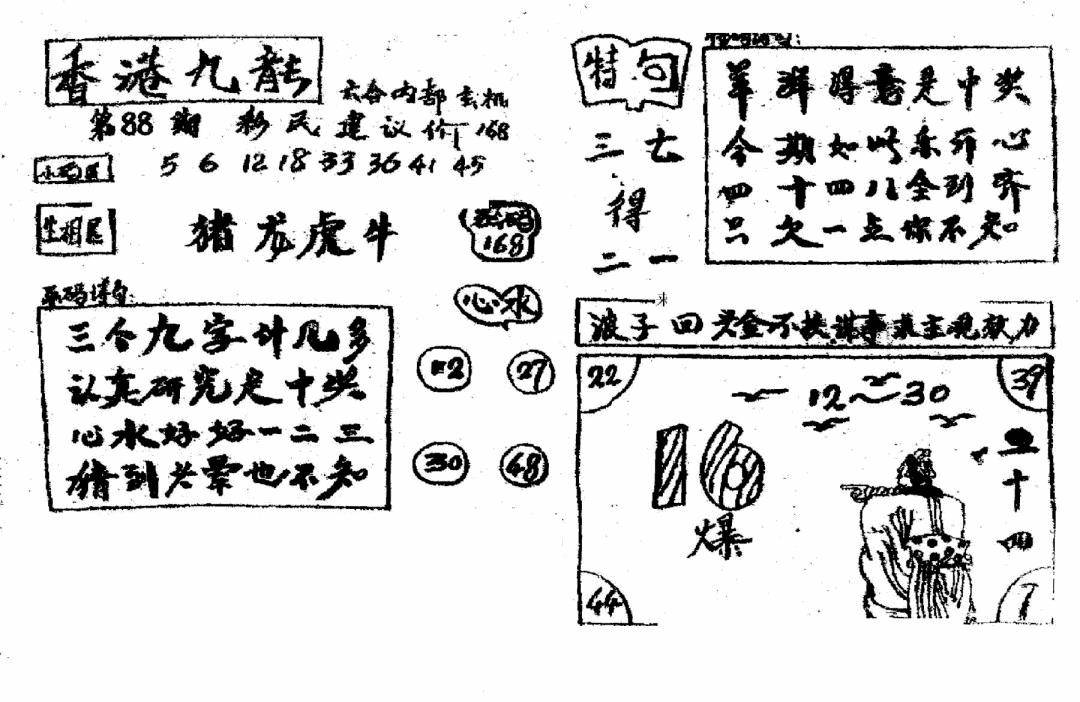 香港九龍
六合内部玄机
第88期 彩民建议价168
5 6 12 18 33 36 41 45
生相區
猪龙虎牛
168
三个九字计几多
认真研究是中奖
心水好好一二三
猜到后果也不知
心水
27
30
48
特句
三七
得
二一
羊洋得意是中奖
今期如此乐开心
四十四八全到齐
只欠一点你不知
浪子回头金不换
22
12~30
39
16
爆
十四
44